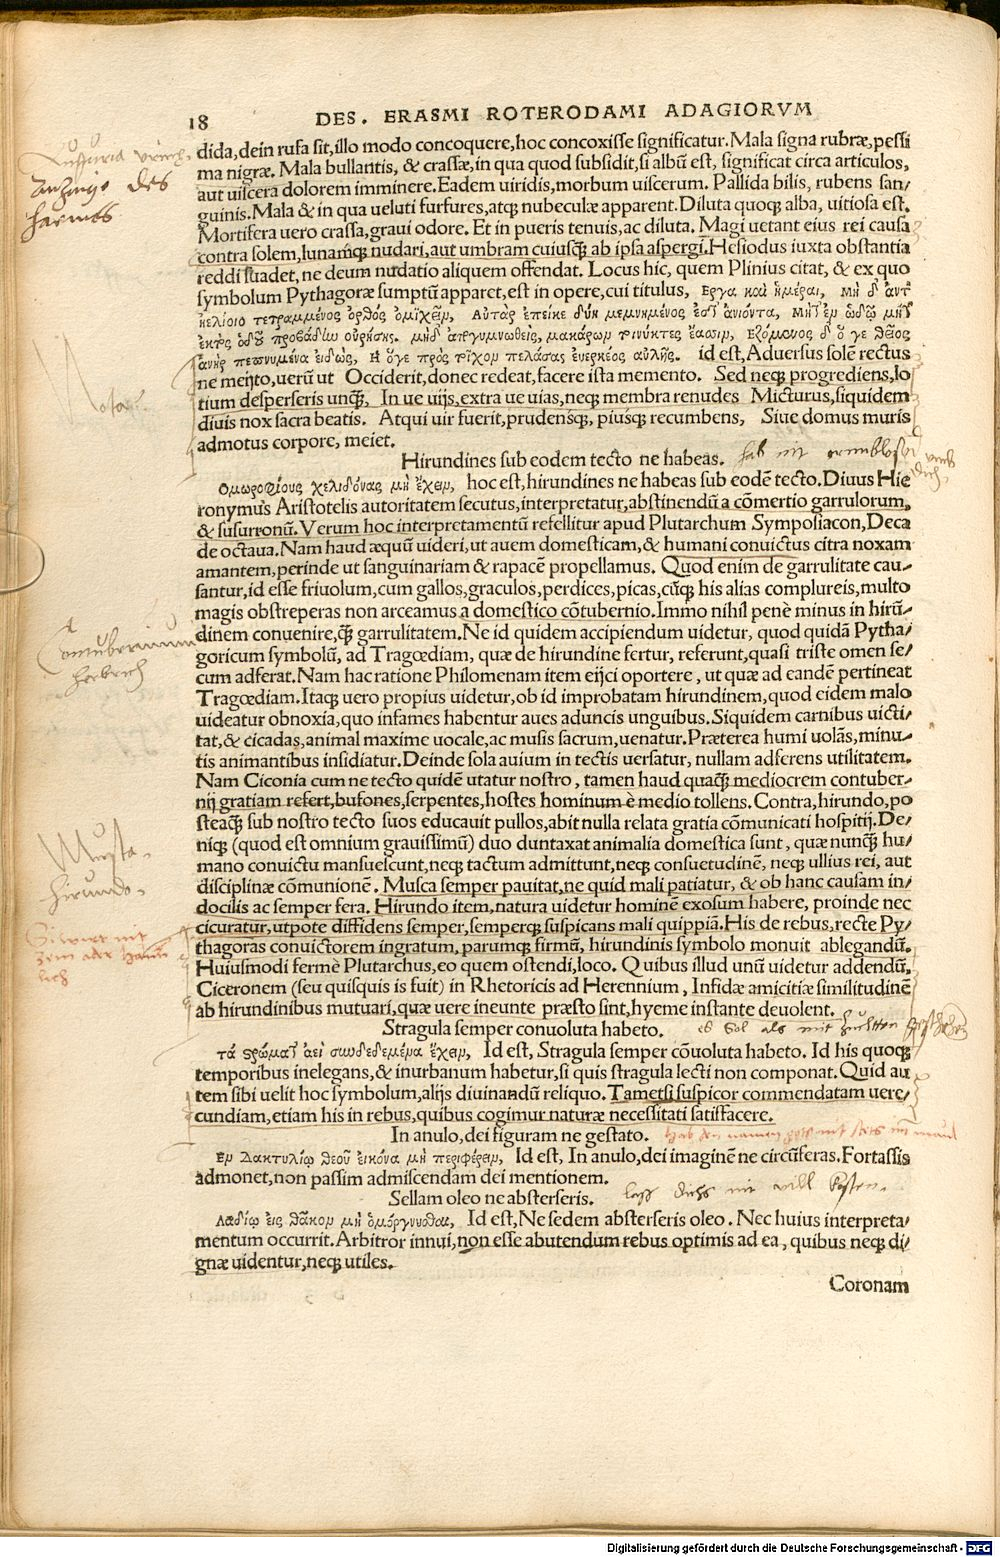 18 DES. ERASMI ROTERODAMI ADAGIORVM
dida, dein rufa sit, illo modo concoquere, hoc concoxisse significatur. Mala signa rubræ, pessi
ma nigræ. Mala bullantis, & crassæ, in qua quod subsidit, si albũ est, significat circa articulos,
aut uiscera dolorem imminere. Eadem uiridis, morbum uiscerum. Pallida bilis, rubens san/
guinis. Mala & in qua ueluti furfures, atq; nubeculæ apparent. Diluta quoq; alba, uitiosa est.
Mortifera uero crassa, graui odore. Et in pueris tenuis, ac diluta. Magi uetant eius rei causa
contra solem, lunamq́; nudari, aut umbram cuiusq́; ab ipsa aspergi. Hesiodus iuxta obstantia
reddi suadet, ne deum nudatio aliquem offendat. Locus hic, quem Plinius citat, & ex quo
symbolum Pythagoræ sumptũ apparet, est in opere, cui titulus, Εργα καὶ ἡμέραι, Μὴ δ' ἀντ'
ἠελίοιο τετραμμένος ὀρθὸς ὀμιχεῖν, Αὐτὰρ ἐπεί κε δύη μεμνημένος ἐς τ' ἀνιόντα, Μήτ' ἐν ὁδῷ μήτ'
ἐκτὸς ὁδοῦ προβάδην οὐρήσῃς. μηδ' ἀπογυμνωθείς, μακάρων τοι νύκτες ἔασιν, Εζόμενος δ' ὅ γε θεῖος
ἀνὴρ πεπνυμένα εἰδώς, Η ὅγε πρὸς τοῖχον πελάσας εὐερκέος αὐλῆς. id est, Aduersus solẽ rectus
ne meijto, uerũ ut Occiderit, donec redeat, facere ista memento. Sed neq; progrediens, lo
tium desperseris unq̃;, In ue uijs, extra ue uias, neq; membra renudes Micturus, siquidem
diuis nox sacra beatis. Atqui uir fuerit, prudensq́;, piusq́; recumbens, Siue domus muris
admotus corpore, meiet.
Nota.
Hirundines sub eodem tecto ne habeas.
Ομωροφίους χελιδόνας μὴ ἔχειν, hoc est, hirundines ne habeas sub eodẽ tecto. Diuus Hie
ronymus Aristotelis autoritatem secutus, interpretatur, abstinendũ a cõmertio garrulorum,
& susurronũ. Verum hoc interpretamentũ refellitur apud Plutarchum Symposiacon, Deca
de octaua. Nam haud æquũ uideri, ut auem domesticam, & humani conuictus citra noxam
amantem, perinde ut sanguinariam & rapacẽ propellamus. Quod enim de garrulitate cau/
santur, id esse friuolum, cum gallos, graculos, perdices, picas, cũq; his alias complureis, multo
magis obstreperas non arceamus a domestico cõtubernio. Immo nihil penè minus in hirũ/
dinem conuenire, q̃; garrulitatem. Ne id quidem accipiendum uidetur, quod quidã Pytha/
goricum symbolũ, ad Tragœdiam, quæ de hirundine fertur, referunt, quasi triste omen se/
cum adferat. Nam hac ratione Philomenam item eijci oportere, ut quæ ad eandẽ pertineat
Tragœdiam. Itaq; uero propius uidetur, ob id improbatam hirundinem, quod eidem malo
uideatur obnoxia, quo infames habentur aues aduncis unguibus. Siquidem carnibus uicti/
tat, & cicadas, animal maxime uocale, ac musis sacrum, uenatur. Præterea humi uolãs, minu/
tis animantibus insidiatur. Deinde sola auium in tectis uersatur, nullam adferens utilitatem.
Nam Ciconia cum ne tecto quidẽ utatur nostro, tamen haud quaq̃; mediocrem contuber/
nij gratiam refert, bufones, serpentes, hostes hominum è medio tollens. Contra, hirundo, po
steaq̃; sub nostro tecto suos educauit pullos, abit nulla relata gratia cõmunicati hospitij. De/
niq; (quod est omnium grauissimũ) duo duntaxat animalia domestica sunt, quæ nunq̃; hu/
mano conuictu mansuescunt, neq; tactum admittunt, neq; consuetudinẽ, neq; ullius rei, aut
disciplinæ cõmunionẽ. Musca semper pauitat, ne quid mali patiatur, & ob hanc causam in/
docilis ac semper fera. Hirundo item, natura uidetur hominẽ exosum habere, proinde nec
cicuratur, utpote diffidens semper, semperq; suspicans mali quippiã. His de rebus, recte Py/
thagoras conuictorem ingratum, parumq; firmũ, hirundinis symbolo monuit ablegandũ.
Huiusmodi fermè Plutarchus, eo quem ostendi, loco. Quibus illud unũ uidetur addendũ,
Ciceronem (seu quisquis is fuit) in Rhetoricis ad Herennium, Infidæ amicitiæ similitudinẽ
ab hirundinibus mutuari, quæ uere ineunte præsto sint, hyeme instante deuolent.
Contubernium
Musca.
hirundo.
Stragula semper conuoluta habeto.
τὰ στρώματ' ἀεὶ συνδεδεμένα ἔχειν, Id est, Stragula semper cõuoluta habeto. Id his quoq;
temporibus inelegans, & inurbanum habetur, si quis stragula lecti non componat. Quid au
tem sibi uelit hoc symbolum, alijs diuinandũ reliquo. Tametsi suspicor commendatam uere/
cundiam, etiam his in rebus, quibus cogimur naturæ necessitati satisfacere.
In anulo, dei figuram ne gestato.
Εν Δακτυλίῳ θεοῦ εἰκόνα μὴ περιφέρειν, Id est, In anulo, dei imaginẽ ne circũferas. Fortassis
admonet, non passim admiscendam dei mentionem.
Sellam oleo ne absterseris.
Λαδίῳ εἰς θᾶκον μὴ ὀμόργνυσθαι, Id est, Ne sedem absterseris oleo. Nec huius interpreta/
mentum occurrit. Arbitror innui, non esse abutendum rebus optimis ad ea, quibus neq; di/
gnæ uidentur, neq; utiles.
Coronam
Digitalisierung gefördert durch die Deutsche Forschungsgemeinschaft - DFG